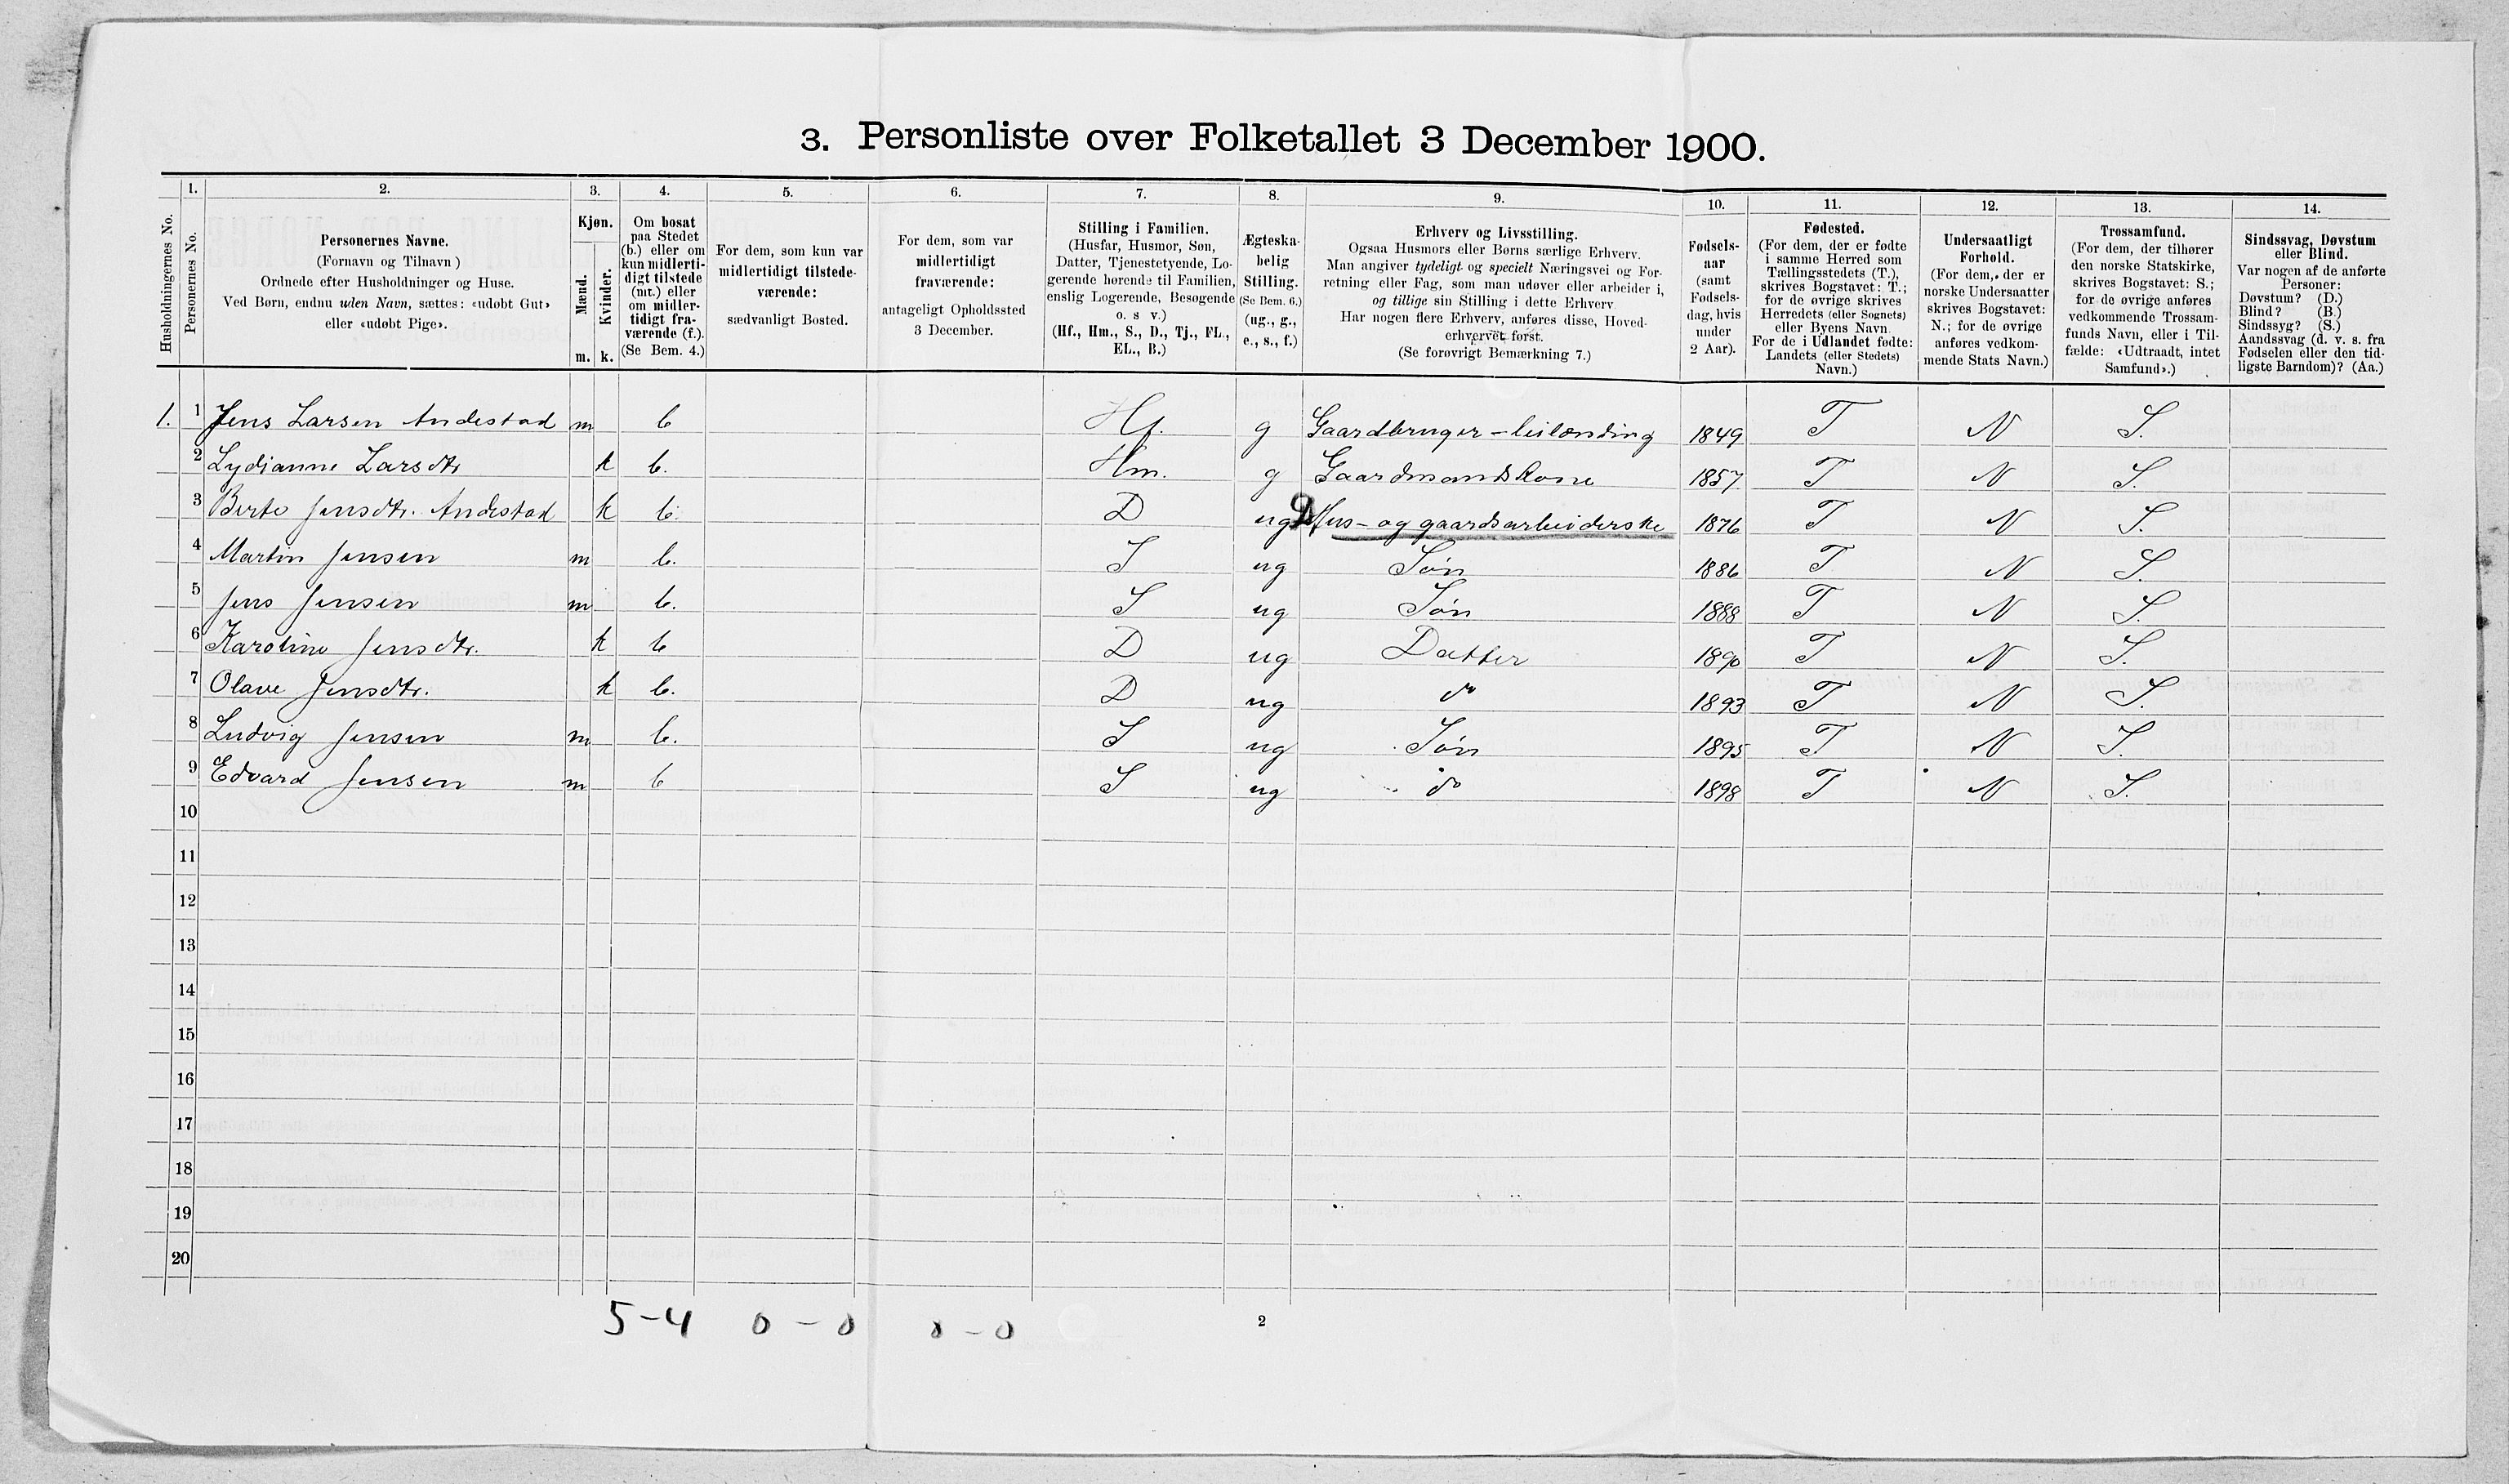 3. Personliste over Folketallet 3 December 1900.
1. 2. 3. 4. 5. 6. 7. 8. 9. 10. 11. 12. 13. 14.
Husholdningernes No.
Personernes No.
Personernes Navne.
(Fornavn og Tilnavn )
Ordnede efter Husholdninger og Huse.
Ved Børn, endnu uden Navn, sættes: «udøbt Gut»
eller «udøbt Pige».
Kjøn.
Mænd.
Kvinder.
m. k.
Om bosat
paa Stedet
(b.) eller om
kun midlerti-
digt tilstede
(mt.) eller
om midler-
tidigt fra-
værende (f.).
(Se Bem. 4.)
For dem, som kun var
midlertidigt tilstede-
værende:
sædvanligt Bosted.
For dem, som var
midlertidigt
fraværende:
antageligt Opholdssted
3 December.
Stilling i Familien.
(Husfar, Husmor, Søn,
Datter, Tjenestetyende, Lo-
gerende hørende til Familien,
enslig Logerende, Besøgende
o. s v.)
(Hf., Hm., S., D., Tj., FL.,
EL., B.)
Ægteska-
belig
Stilling.
(Se Bem. 6.)
(ug., g.,
e., s., f.)
Erhverv og Livsstilling.
Ogsaa Husmors eller Børns særlige Erhverv.
Man angiver tydeligt og specielt Næringsvei og For-
retning eller Fag, som man udøver eller arbeider i,
og tillige sin Stilling i dette Erhverv
Har nogen flere Erhverv, anføres disse, Hoved-
erhvervet først.
(Se forøvrigt Bemærkning 7.)
Fødsels-
aar
(samt
Fødsels-
dag, hvis
under
2 Aar).
Fødested.
(For dem, der er fødte
i samme Herred som
Tællingsstedets (T.),
skrives Bogstavet: T.;
for de øvrige skrives
Herredets (eller Sognets)
eller Byens Navn
For de i Udlandet fødte:
Landets (eller Stedets)
Navn.)
Undersaatligt
Forhold.
(For dem, der er
norske Undersaatter
skrives Bogstavet:
N.; for de øvrige
anføres vedkom-
mende Stats Navn.)
Trossamfund.
(For dem, der tilhører
den norske Statskirke,
skrives Bogstavet: S.;
for de øvrige anføres
vedkommende Trossam-
funds Navn, eller i Til-
fælde: «Udtraadt, intet
Samfund».)
Sindssvag, Døvstum
eller Blind.
Var nogen af de anførte
Personer:
Døvstum? (D.)
Blind? (B.)
Sindssyg? (S.)
Aandssvag (d. v. s. fra
Fødselen eller den tid-
ligste Barndom)? (Aa.)
1. 1 Jens Larsen Andestad m b Hf. g Gaardbruger - leilænding 1849 T N S.
2 Lydianne Larsdtr k b. Hm. g Gaardmandskone 1857 T N S.
3 Berte Jensdtr. Andestad k b. D ug Hus- og gaardsarbeiderske 1876 T N S.
4 Martin Jensen m b. S ug Søn 1886 T N S.
5 Jens Jensen m b. S ug Søn 1888 T N S.
6 Karoline Jensdtr. k b D ug Datter 1890 T N S.
7 Olave Jensdtr. k b. D ug do 1893 T N S.
8 Ludvig Jensen m b. S ug Søn 1895 T N S.
9 Edvard Jensen m b S ug do 1898 T N S.
10
11
12
13
14
15
16
17
18
19
20
5-4 0-0 0-0
2